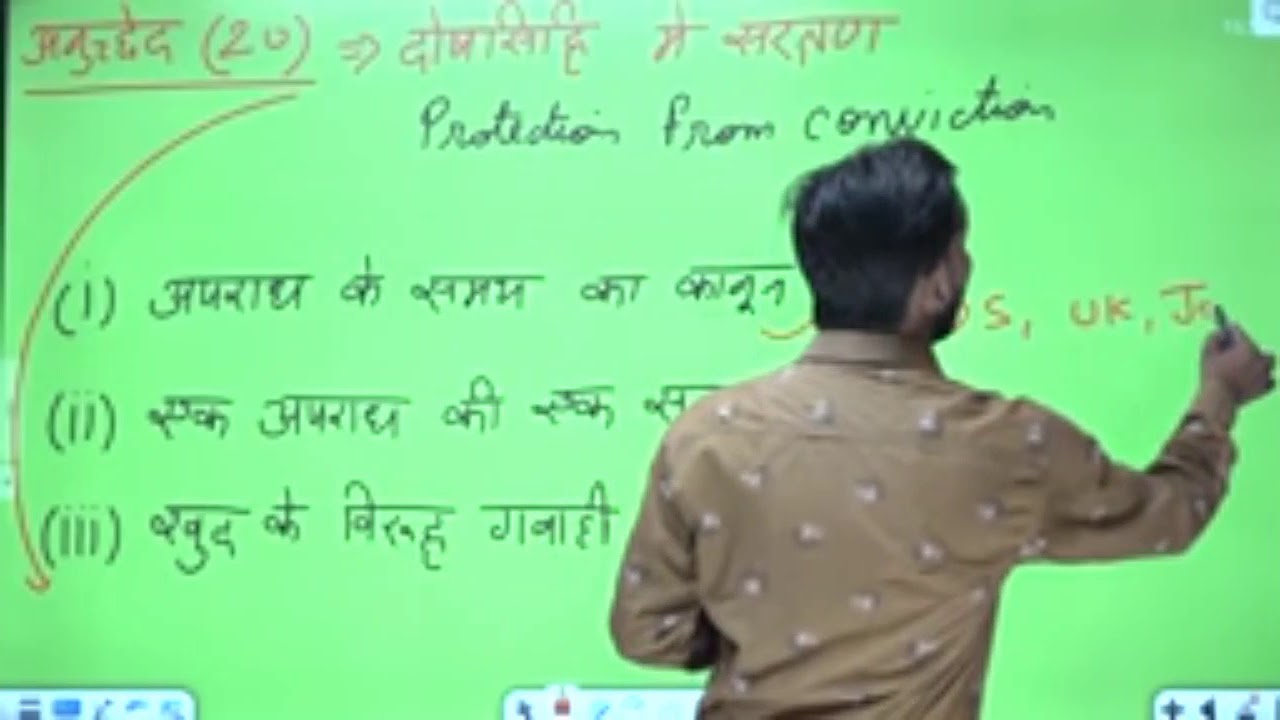 अनुच्छेद (20) ⇒ दोषसिद्धि मे सरक्षण
Protection from conviction
(i) अपराध के समय का कानून S, UK, Ja
(ii) एक अपराध की एक
(iii) खुद के विरूद्ध गवाही